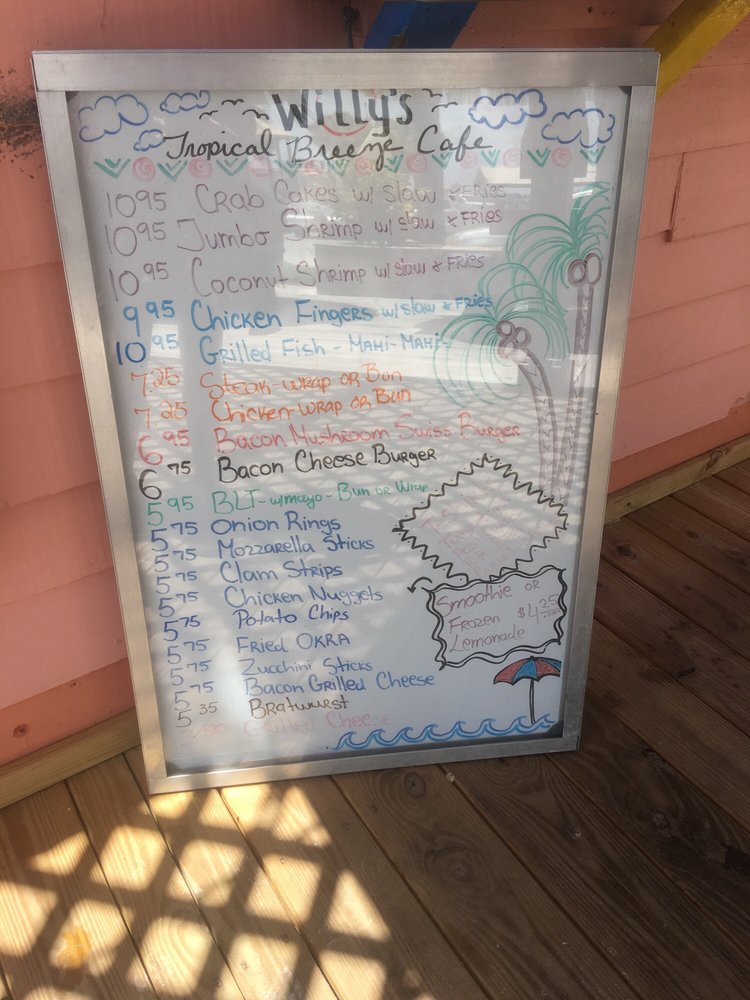 Willy's
Tropical Breeze Cafe
10.95 Crab Cakes w/ slaw & Fries
10.95 Jumbo Shrimp w/ slaw & Fries
10.95 Coconut Shrimp w/ slaw & Fries
9.95 Chicken Fingers w/ slaw & Fries
10.95 Grilled Fish - Mahi-Mahi-
7.25 Steak-wrap or Bun
7.25 Chicken-wrap or Bun
6.95 Bacon Mushroom Swiss Burger
6.75 Bacon Cheese Burger
5.95 BLT-w/mayo-Bun or Wrap
5.75 Onion Rings
5.75 Mozzarella Sticks
5.75 Clam Strips
5.75 Chicken Nuggets
5.75 Potato Chips
5.75 Fried Okra
5.75 Zucchini Sticks
5.75 Bacon Grilled Cheese
5.35 Bratwurst
Grilled Cheese
Smoothie or
Frozen $4.25
Lemonade